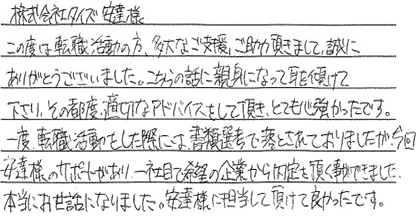 株式会社タイズ 安達様
この度は転職活動の方、多大なご支援、ご助力頂きまして、誠に
ありがとうございました。こちらの話に親身になって耳を傾けて
下さり、その都度、適切なアドバイスをして頂き、とても心強かったです。
一度、転職活動をした際には、書類選考で落とされておりましたが、今回
安達様のサポートがあり、一社目で希望の企業から内定を頂く事ができました。
本当にお世話になりました。安達様に担当して頂けて良かったです。